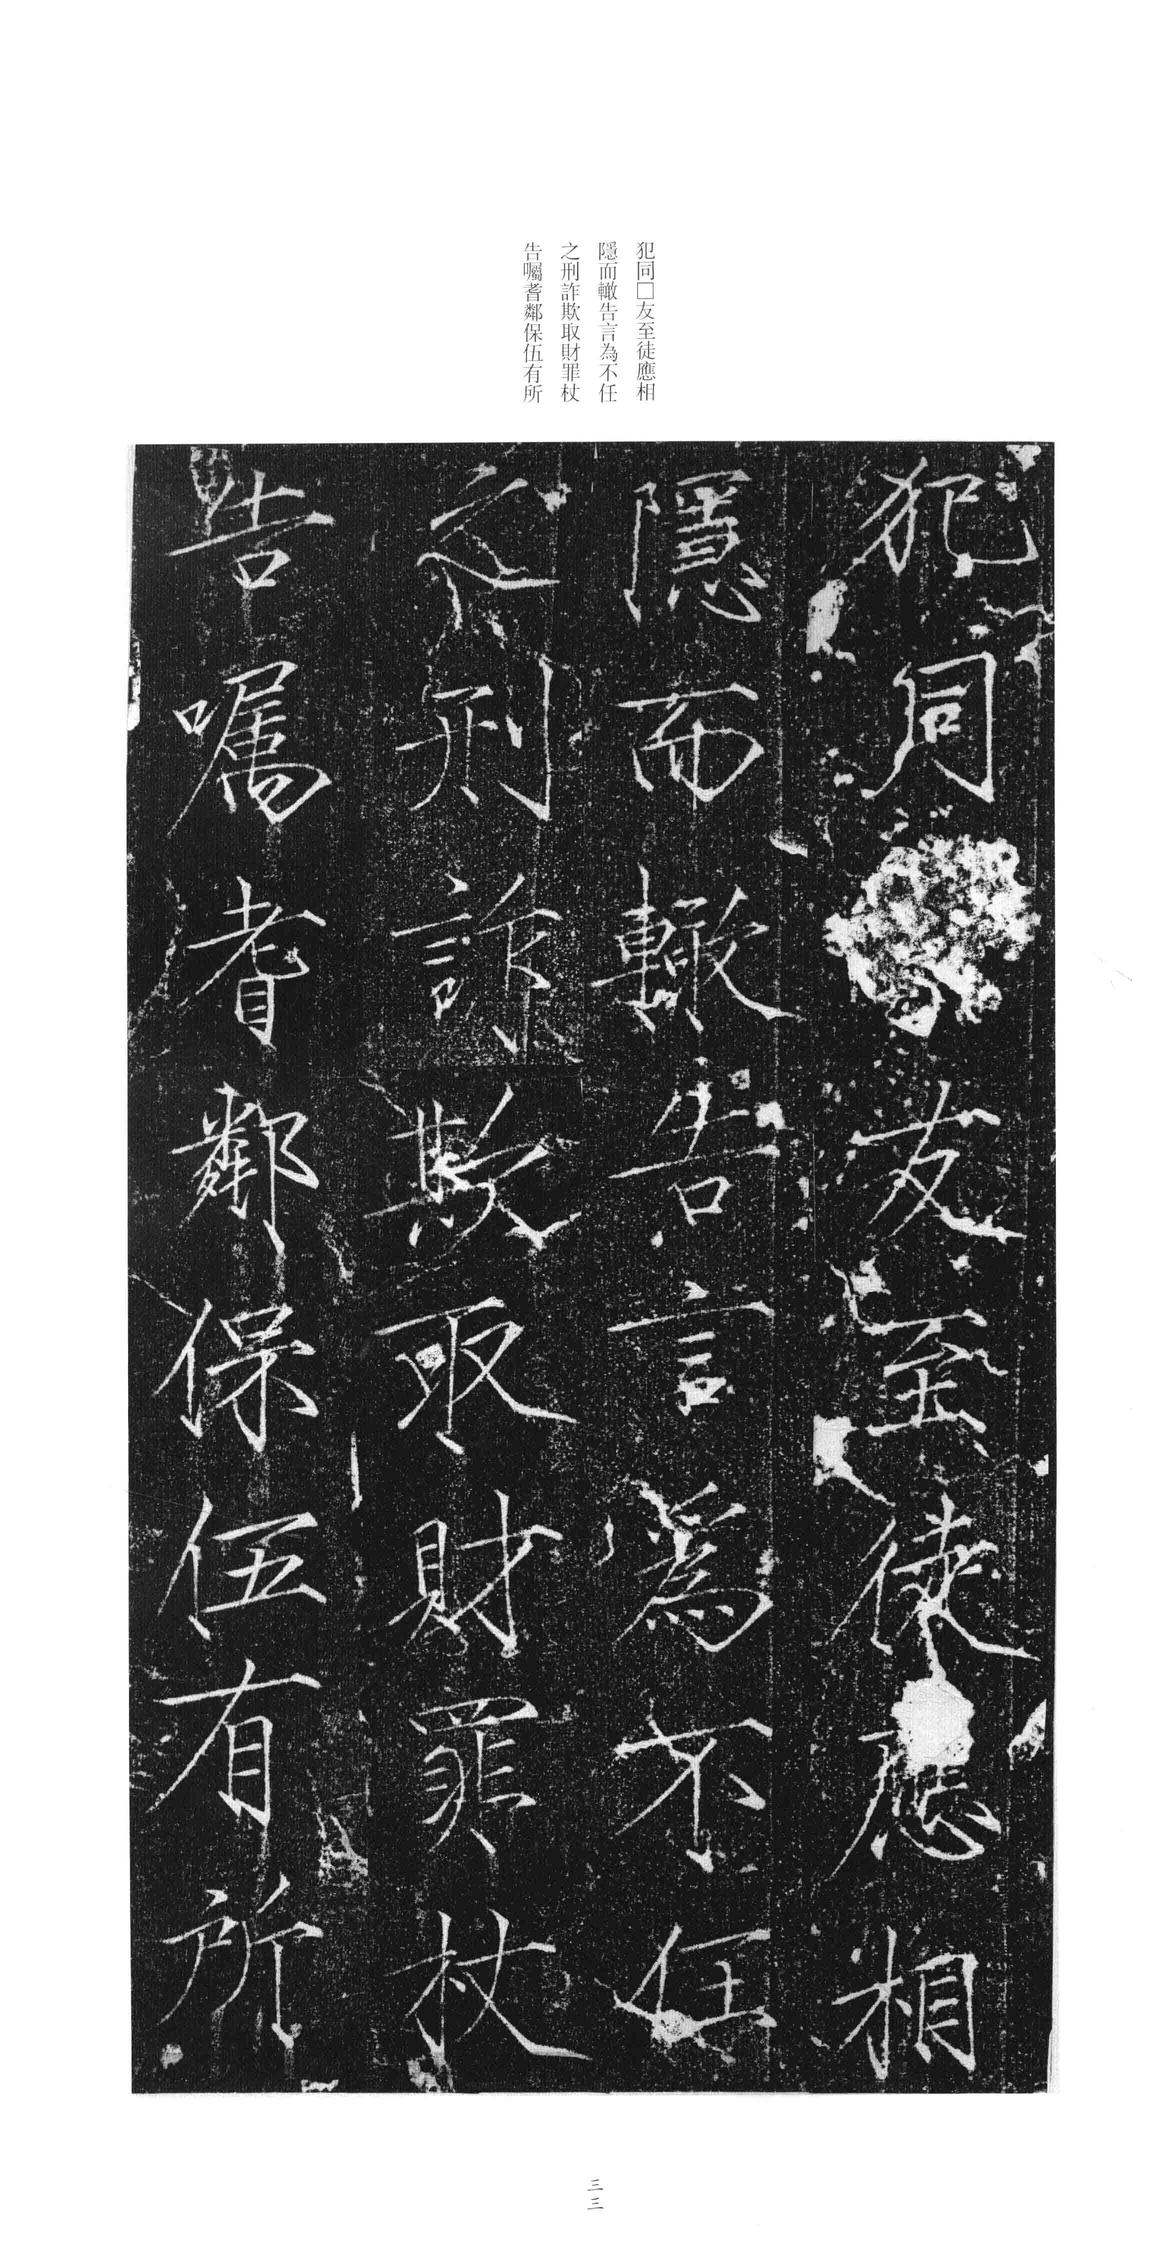 犯同□友至徒應相
隱而轍告言為不任
之刑詐欺取財罪杖
告囑耆鄰保伍有所
犯同友至徒應相
隱而轍告言爲不任
之刑詐欺取財罪杖
告囑耆鄰保伍有所
三三